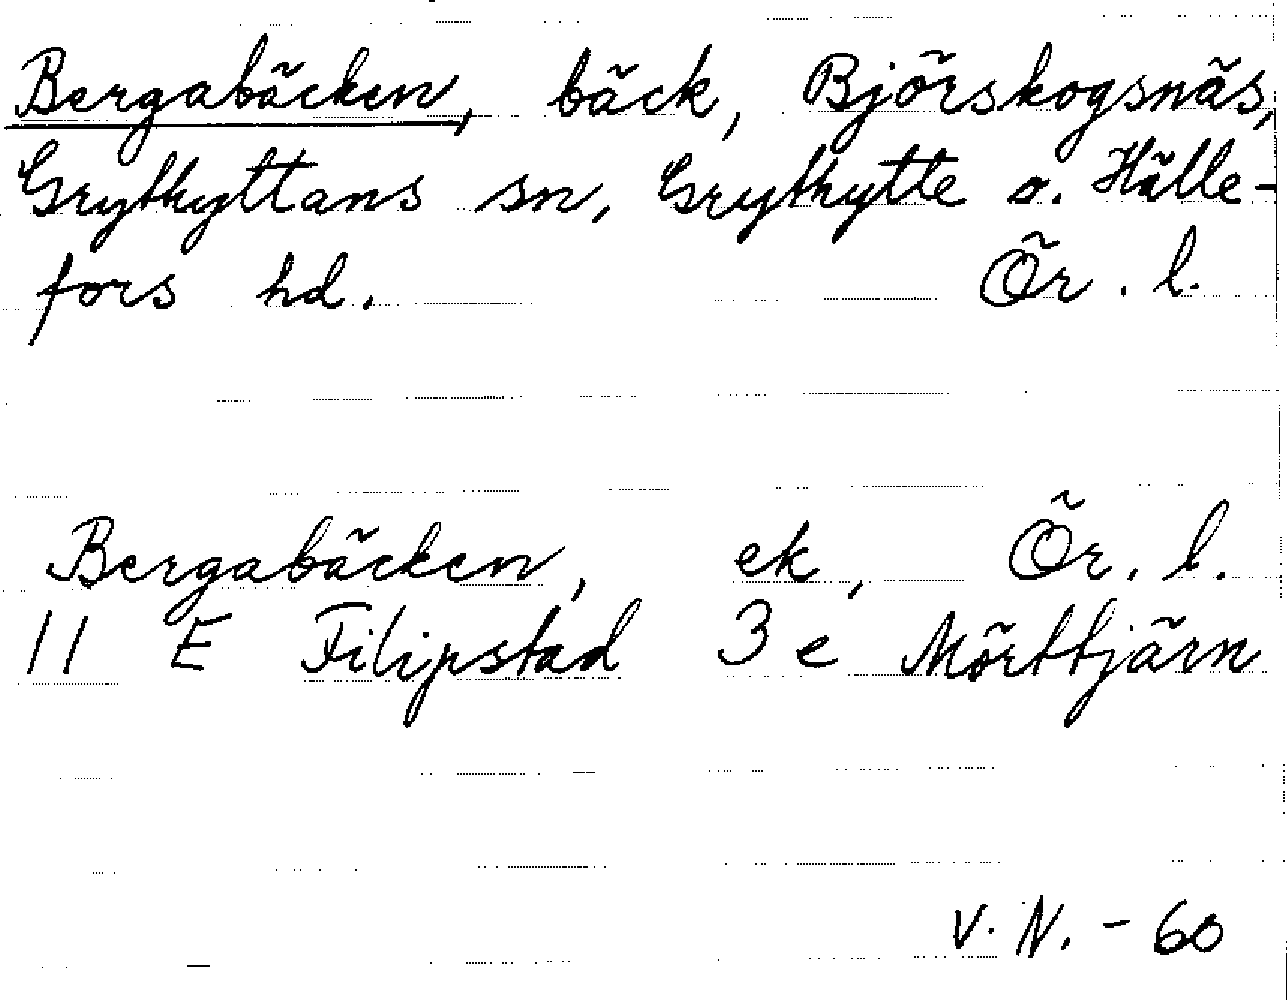 Bergabäcken, bäck, Björskogsnäs,
Grythyttans sn, Grythytte o. Hälle-
fors hd. Ör. l.
Bergabäcken, ek, Ör. l.
11 E Filipstad 3 e Mörttjärn
V. N. - 60